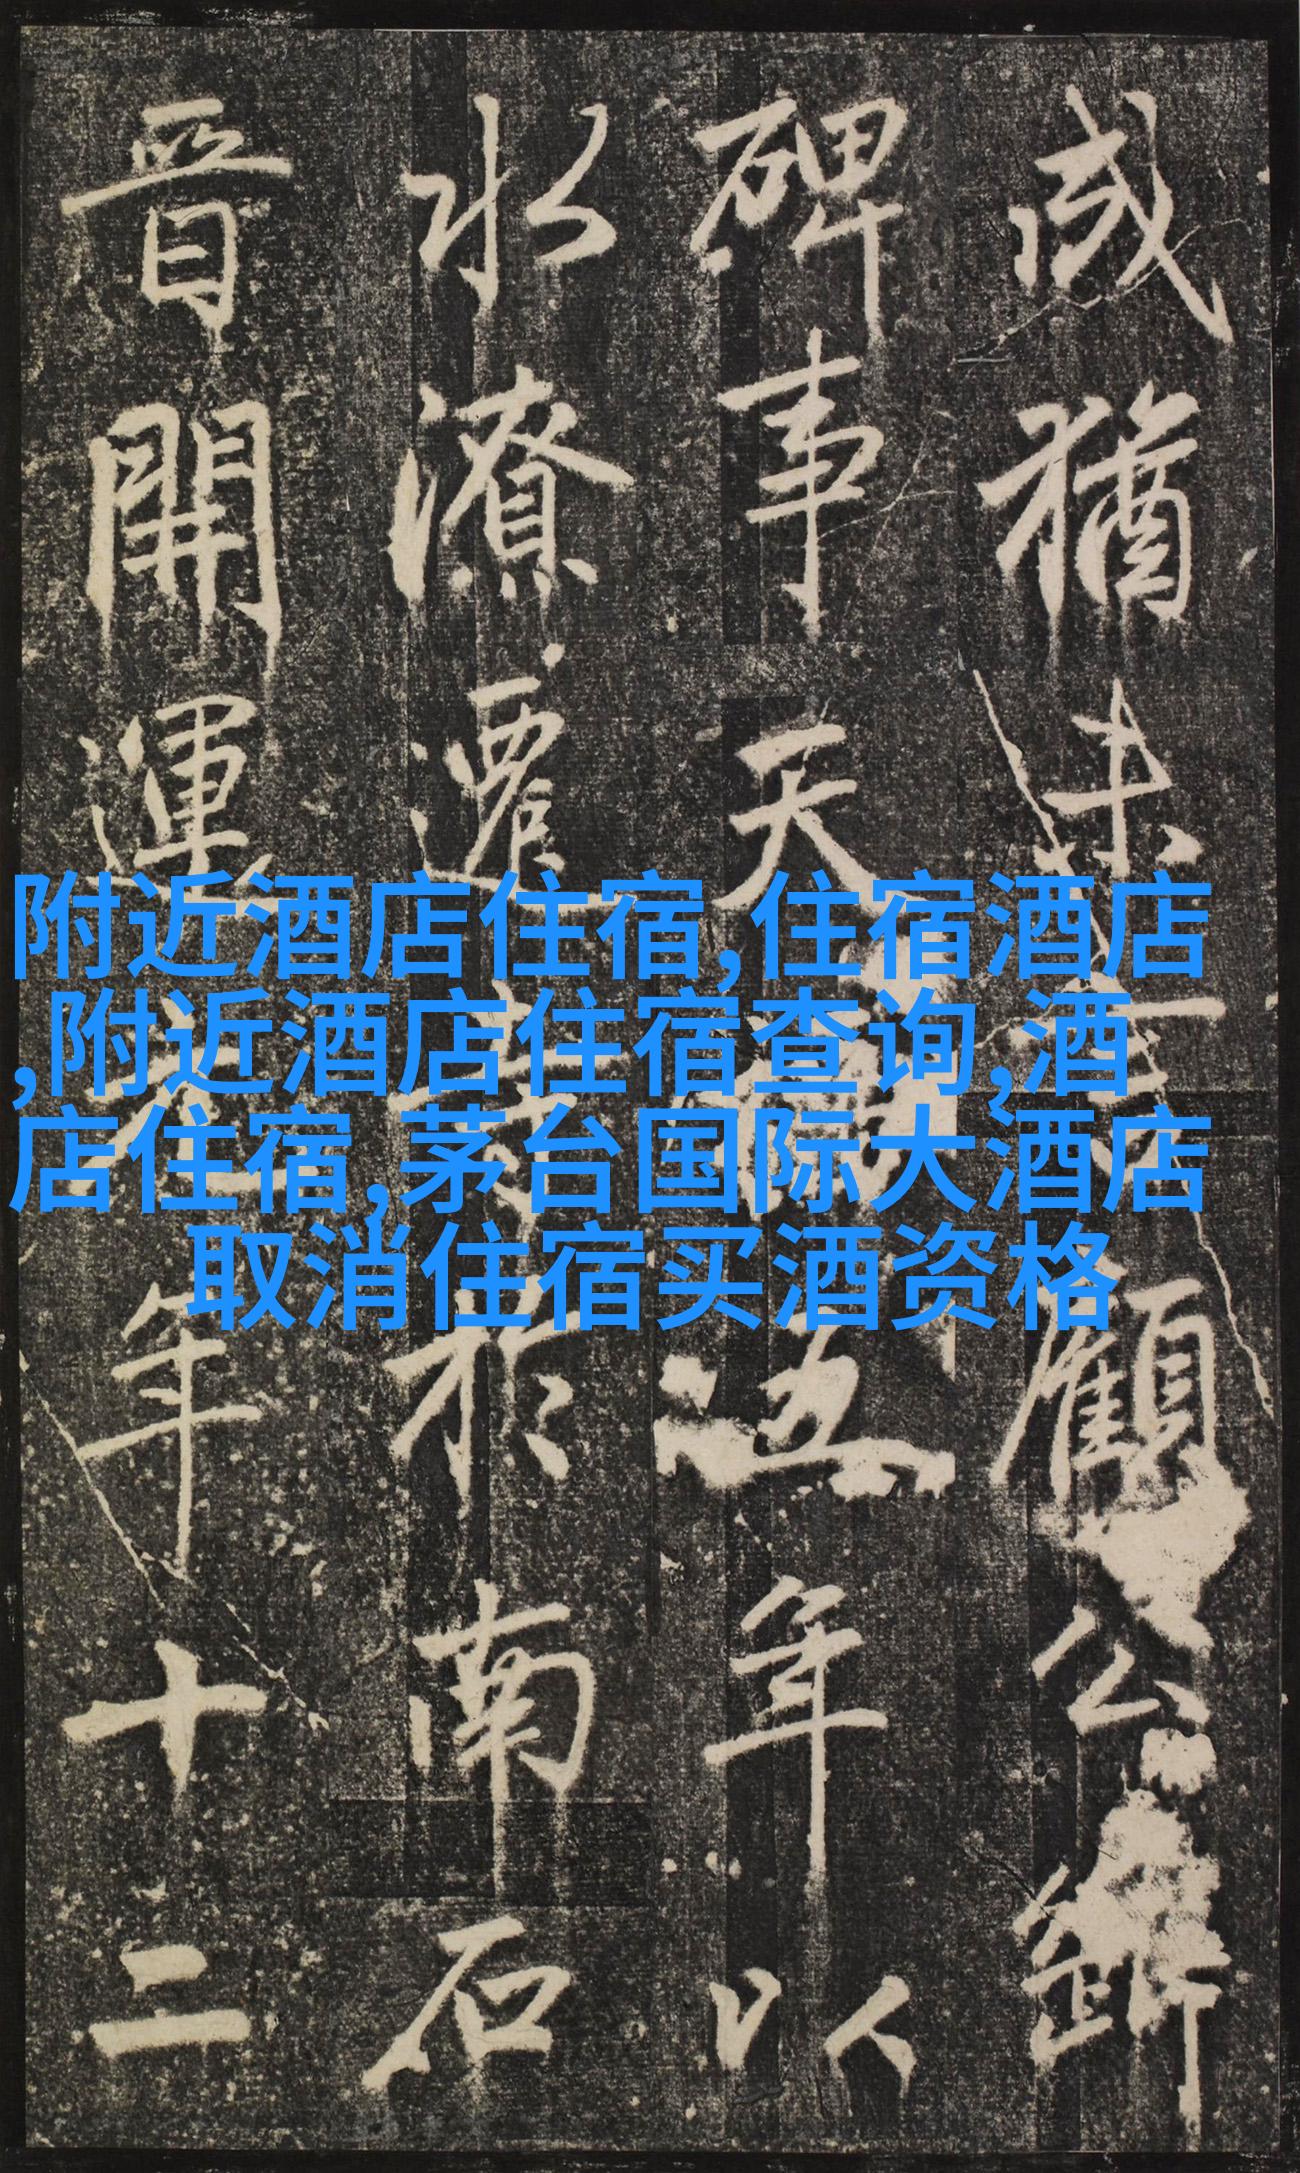 咸猶未一顧公辦
碑事天五年以
水潦遷於南石
晉開運年十二
附近酒店住宿,住宿酒店
,附近酒店住宿查询,酒
店住宿,茅台国际大酒店
取消住宿买酒资格